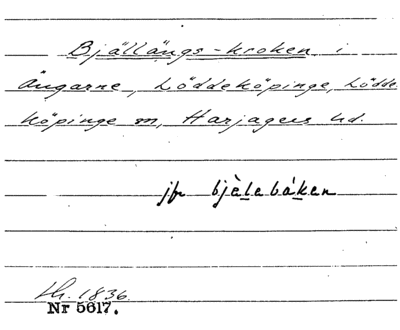 Bjällängs-kroken i
Ängarne, Löddeköpinge, Lödde
köpinge sn, Harjagers hd.
jfr bjèlebáken
Lh. 1836.
Nr 5617.